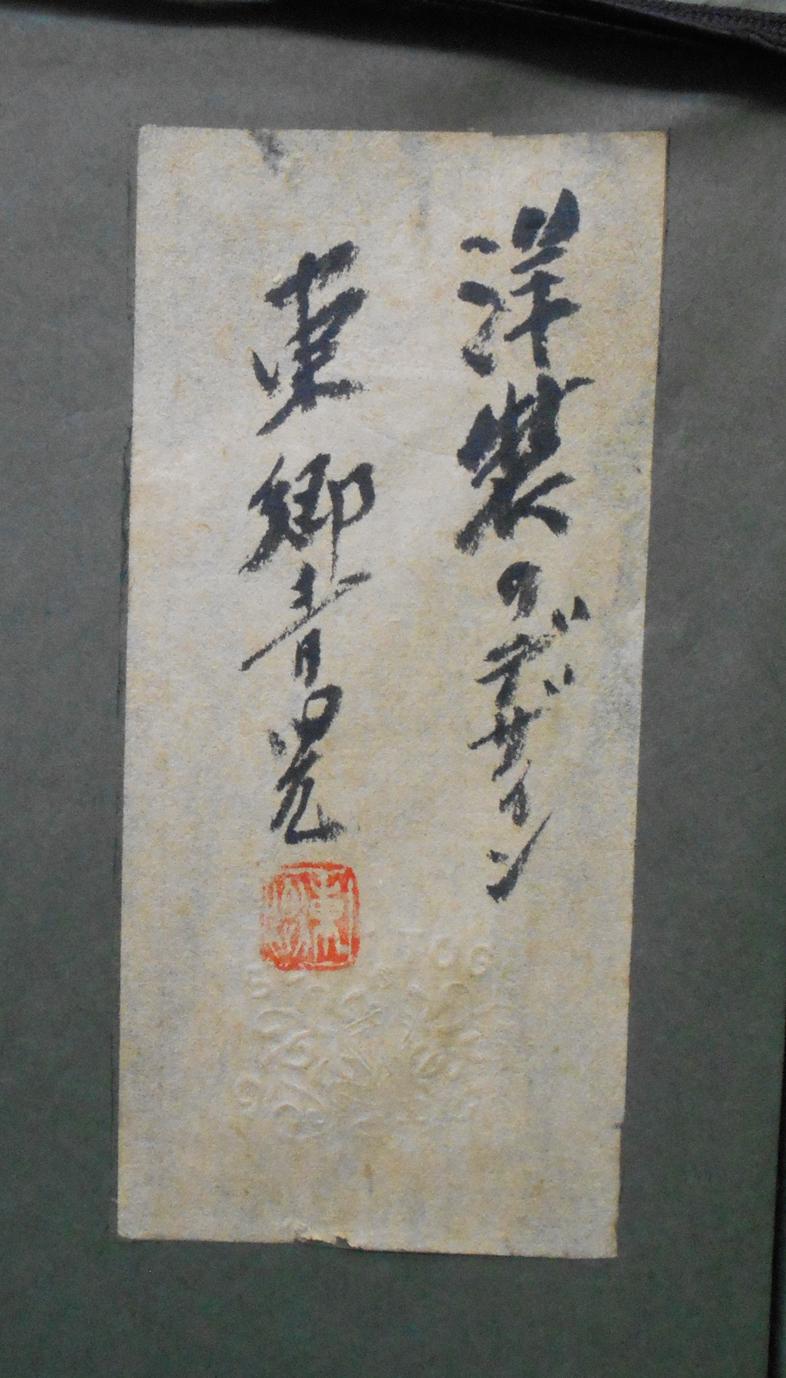 洋製のデザイン
東郷青児
東郷
TOG